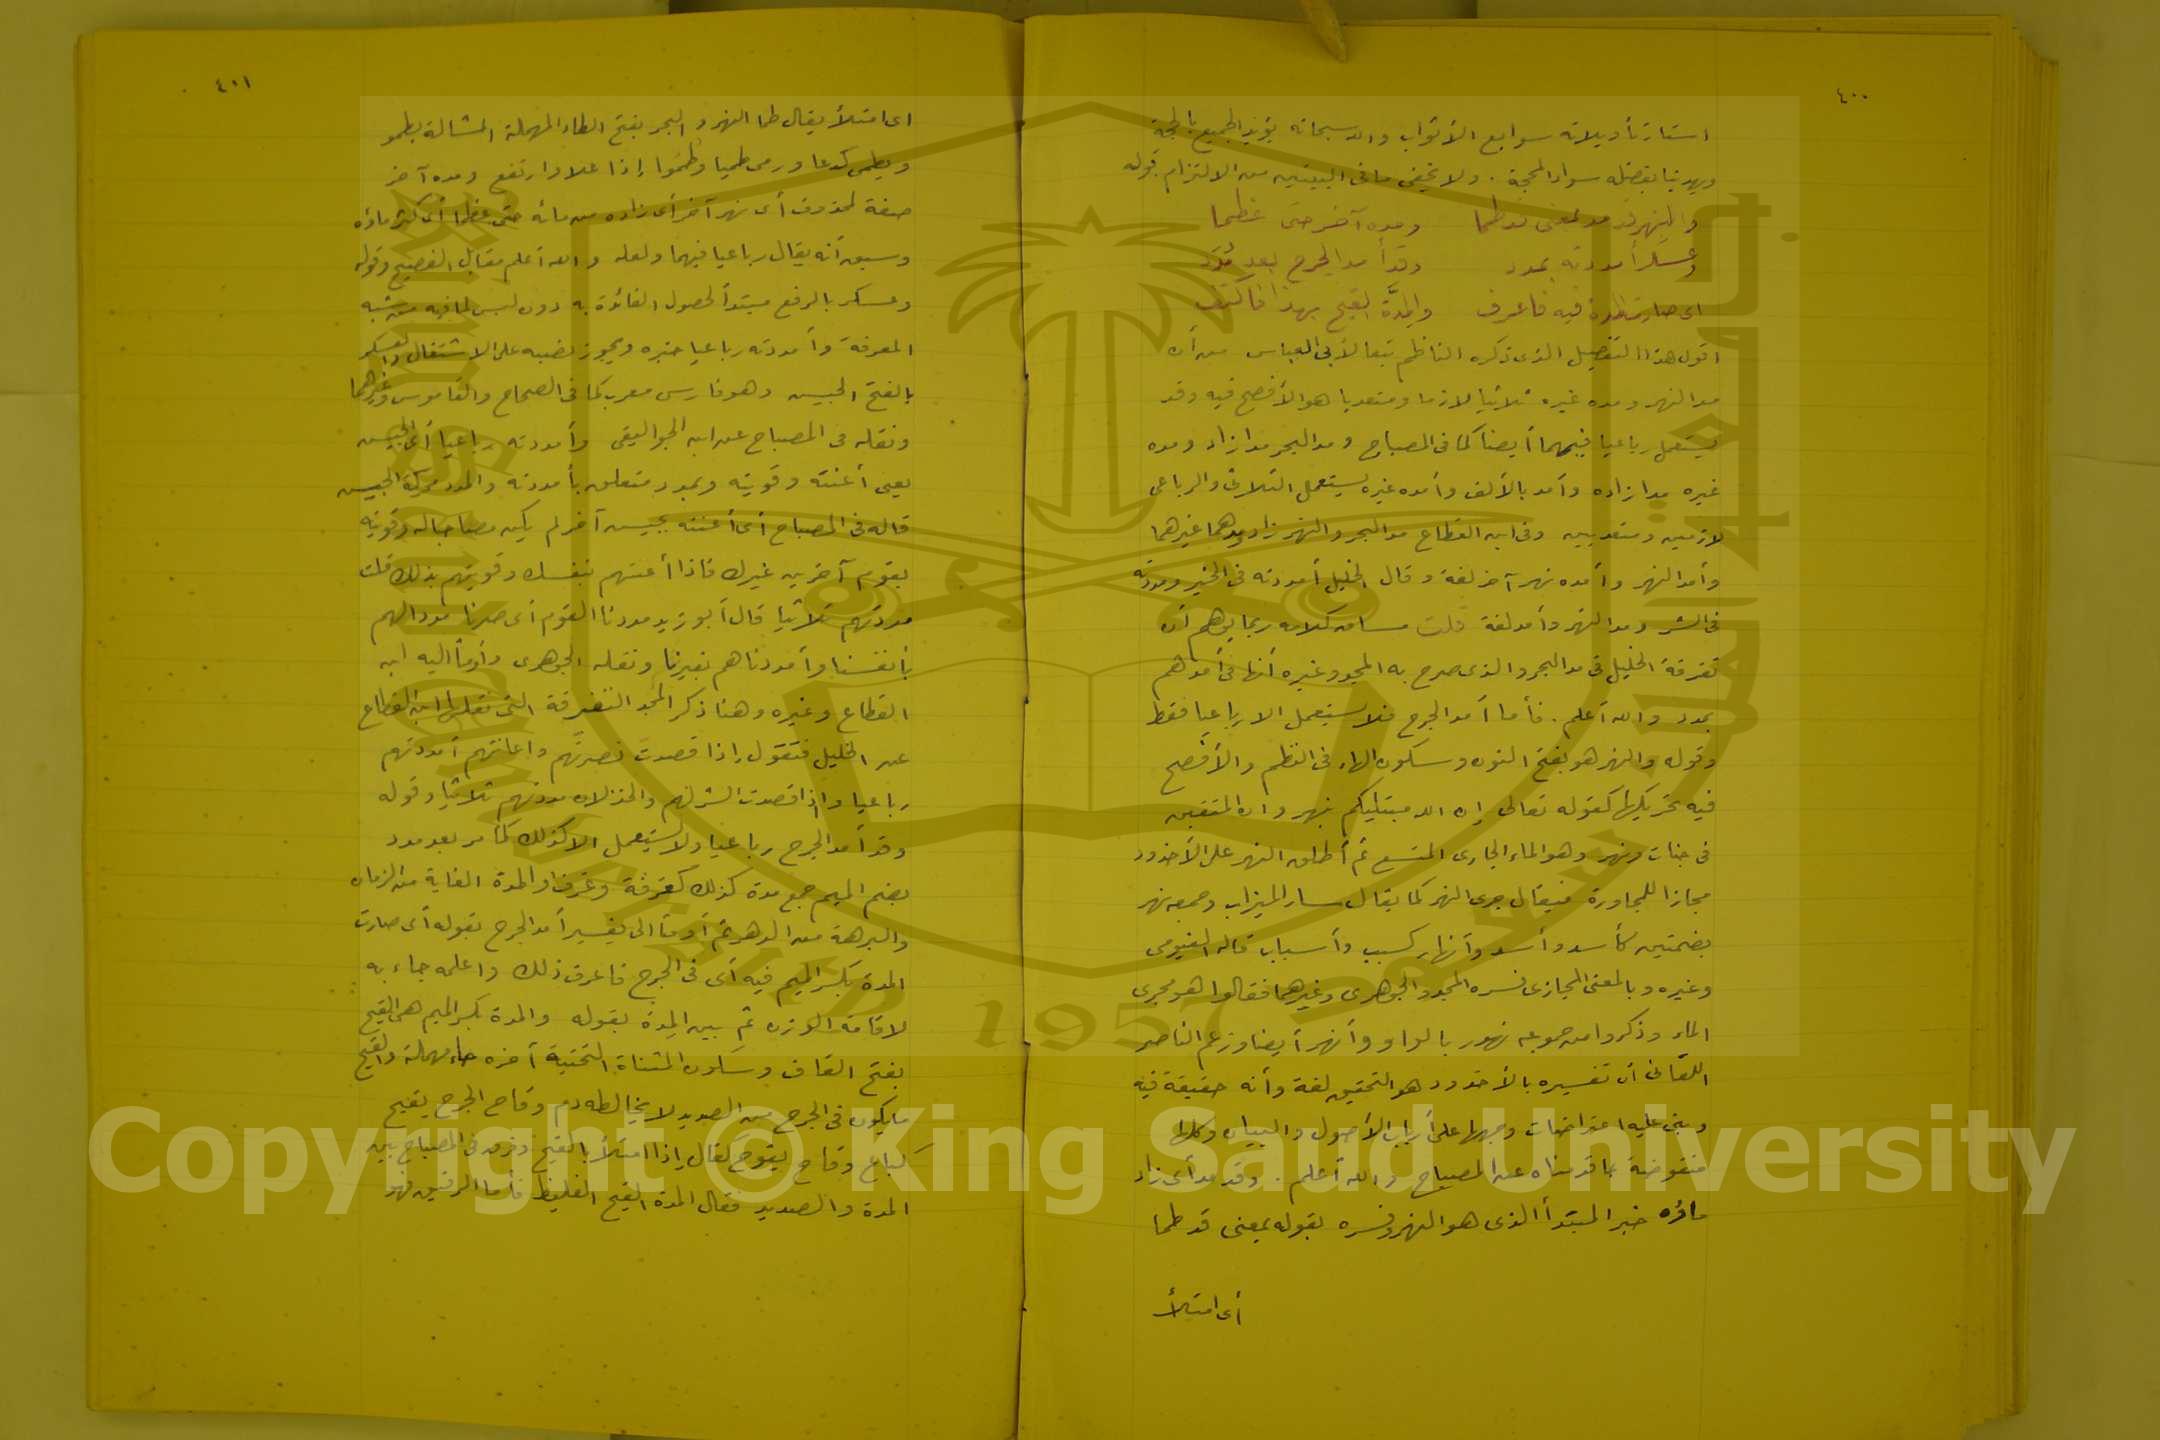 ٤٠٠
استارة تأويلاته سوابغ الأثواب والله سبحانه يؤيد الجميع بالحجة
ويهدينا بفضله سواء المحجة . ولا يخفى ما فى البيتين من الالتزام قوله
والنهر قد مد بمعنى قد طما ومده آخر حتى عظما
وعسكر أمددته بمدد وقد أمد الجرح بعد مُدَد
اى صارت المدة فيه فاعرف والمِدَّة القيح بهذا فاكتف
اقول هذا التفصيل الذى ذكره الناظم تبعا لأبى العباس من أن
مد النهر ومده غيره ثلاثيا لازما ومتعديا هو الأفصح فيه وقد
يستعمل رباعيا فيهما أيضا كما فى المصباح ومد البحر مدا زاد ومده
غيره مدا زاده وأمد بالألف وأمده غيره يستعمل الثلاثى والرباعى
لازمين ومتعديين وفى ابن القطاع مد البحر والنهر زاد ومدهما غيرهما
وأمد النهر وأمده نهر آخر لغة وقال الخليل أمددته فى الخير ومددته
فى الشر ومد النهر وأمد لغة قلت مساق كلامه ربما يوهم أن
تفرقة الخليل فى مد البحر والذى صرح به المجد وغيره أنها فى أمدهم
بمدد والله أعلم . فأما أمد الجرح فلا يستعمل الا رباعيا فقط
وقوله والنهر هو بفتح النون وسكون الهاء فى النظم والأفصح
فيه تحريكها كقوله تعالى إن الله مبتليكم بنهر وان المتقين
فى جنات ونهر وهو الماء الجارى المتسع ثم أطلق النهر على الأخدود
مجازا للمجاورة فيقال جرى النهر كما يقال سار الميزاب وجمعه نهر
بضمتين كأسد وأسد وأنهار كسبب وأسباب قاله الفيومى
وغيره وبالمعنى المجازى فسره المجد والجوهرى وغيرهما فقالوا هو مجرى
الماء وذكروا من جموعه نهور بالواو وأنهر أيضا وزعم الناصر
اللقانى أن تفسيره بالأخدود هو التحقيق لغة وأنه حقيقة فيه
وبنى عليه اعتراضات وجهها على أرباب الأصول والبيان وكلها
منقوضة بما قدمناه عن المصباح والله أعلم . وقد مد أى زاد
ماؤه خبر المبتدأ الذى هو النهر وفسره بقوله بمعنى قد طما
أى امتلأ
٤٠١
اى امتلأ يقال طما النهر والبحر بفتح الطاء المهملة المشالة يطمو
ويطمى كدعا ورمى طميا وطُمُوا إذا علا وارتفع ومده آخر
صفة لمحذوف أى نهر آخر أى زاده من مائه حتى عظما أى كثر ماؤه
وسبق أنه يقال رباعيا فيهما ولعله والله أعلم مقابل الفصيح وقوله
وعسكر بالرفع مبتدأ لحصول الفائدة به دون لبس لما فيه من شبه
المعرفة وأمددته رباعيا خبره ويجوز نصبه على الاشتغال والعسكر
بالفتح الجيش وهو فارسى معرب كما فى الصحاح والقاموس وغيرهما
ونقله فى المصباح عن ابن الجواليقى وأمددته رباعيا أى الجيش
يعنى أعنته وقويته وبمدد متعلق بأمددته والمدد محركة الجيش
قاله فى المصباح أى أعنته بجيش آخر لم يكن مصاحبا له وقويته
بقوم آخرين غيرك فاذا أعنتهم بنفسك وقويتهم بذلك قلت
مددتهم ثلاثيا قال أبو زيد مددنا القوم أى صرنا مددا لهم
بأنفسنا وأمددناهم بغيرنا ونقله الجوهرى وأومأ اليه ابن
القطاع وغيره وهنا ذكر المجد التفرقة التى نقلها ابن القطاع
عن الخليل فتقول إذا قصدت نصرتهم واعانتهم أمددتهم
رباعيا وإذا قصدت الشر لهم والخذلان مددتهم ثلاثيا وقوله
وقد أمد الجرح رباعيا ولا يستعمل الا كذلك كما مر بعد مدد
بضم الميم جمع مدة كذلك كغرفة وغرف والمدة الغاية من الزمان
والبرهة من الدهر ثم أومأ الى تفسير أمد الجرح بقوله أى صارت
المدة بكسر الميم فيه أى فى الجرح فاعرف ذلك واعلمه جاء به
لاقامة الوزن ثم بين المِدة بقوله والمدة بكسر الميم هى القيح
بفتح القاف وسكون المثناة التحتية آخره حاء مهملة والقيح
ما يكون فى الجرح من الصديد لا يخالطه دم وقاح الجرح يقيح
كباع وقاح يقوح كقال إذا امتلأ بالقيح وفرق فى المصباح بين
المدة والصديد فقال المدة القيح الغليظ فأما الرقيق فهو
1957
Copyright © King Saud University